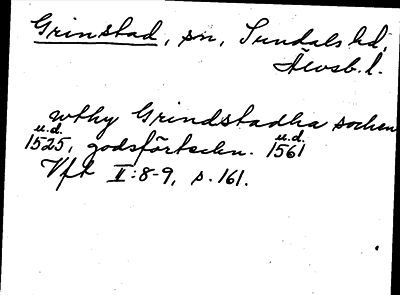 Grinstad, sn, Sundals hd,
Älvsb. l.
wthy Grindstadha sochen
u.d. u.d.
1525, godsförteckn. 1561
Vft II:8-9, s. 161.